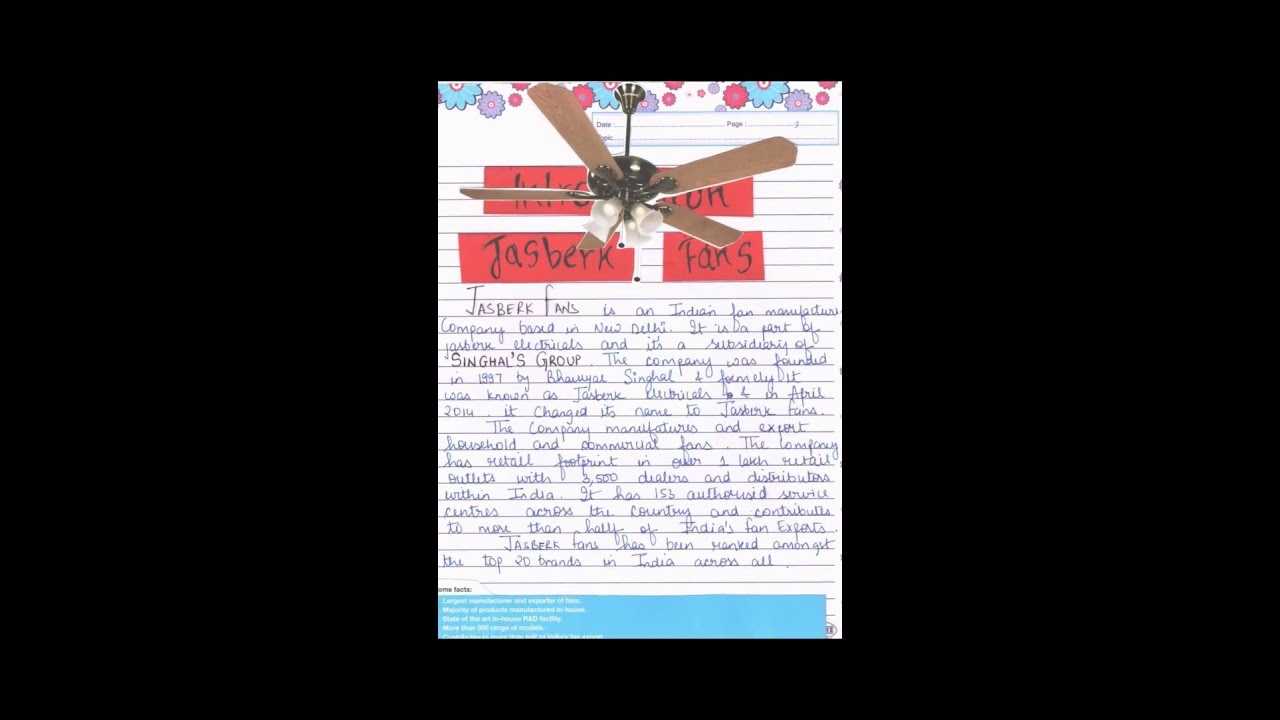 Date :
Page : 3
Topic
Intro tion
Jasberk Fans
JASBERK FANS is an Indian fan manufacturi
Company based in New Delhi. It is a part of
jasberk electricals and its a subsidiary of
SINGHAL'S GROUP. The company was founded
in 1997 by Singhal & formely it
was known as Jasberk electricals & in April
2014. it changed its name to Jasberk fans.
The Company manufatures and export
household and commercial fans. The Company
has retail footprint in over 1 lakh retail
outlets with 3,500 dealers and distributors
within India. It has 153 authorised service
centres across the country and contributes
to more than half of India's fan Exports.
JASBERK fans has been ranked amongst
the top 20 brands in India across all.
ome facts:
Largest manufacturer and exporter of fans.
Majority of products manufactured in-house.
State of the art in-house R&D facility.
More than 300 range of models.
Contributes to more than half of India's fan export.